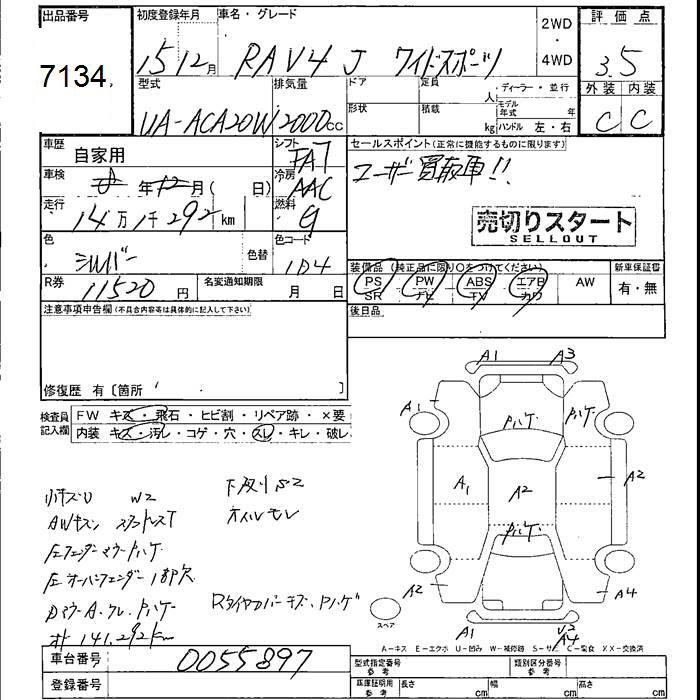 出品番号
7134
初度登録年月
15 12月
車名・グレード
RAV4 J ワイドスポーツ
2WD
・
4WD
評価点
3.5
外装 内装
C C
型式
UA-ACA20W
排気量
2000cc
ドア
形状
定員
人
積載
kg
・ディーラー・並行
モデル年式 年
ハンドル 左・右
車歴
自家用
シフト
FAT
車検
年12月( 日)
冷房
AAC
走行
14万1千292km
燃料
G
色
シルバー
色替
色コード
1D4
R券
11520円
名変通知期限
月 日
セールスポイント(正常に機能するものに限ります)
ユーザー買取車!!
売切りスタート
SELLOUT
装備品(純正品に限り○をつけてください)
PS PW ABS エアB AW
SR ナビ TV カワ
新車保証書
有・無
後日品
注意事項申告欄(不具合内容等は具体的に記入して下さい)
修復歴 有〔箇所 〕
検査員記入欄
FW キズ・飛石・ヒビ割・リペア跡・×要
内装 キズ・汚れ・コゲ・穴・スレ・キレ・破レ
小キズU W2
下廻りS2
AWキズ スタッドレスT
オイルモレ
左フェンダーマウントハゲ
左オーバーフェンダー1部欠
Rタイヤカバーキズ、Pハゲ
141,292km
A1 A3
A1 Pハゲ Pハゲ
A1 A2 A2
Pハゲ
A2 A4
A1 V2
A4
スペア
A－キス E－エクボ U－凹み W－補修跡 S－サビ C－腐食 XX－交換済
車台番号
0055897
登録番号
型式指定番号
参考
類別区分番号
参考
車庫証明用
参考
長さ cm
幅 cm
高さ cm